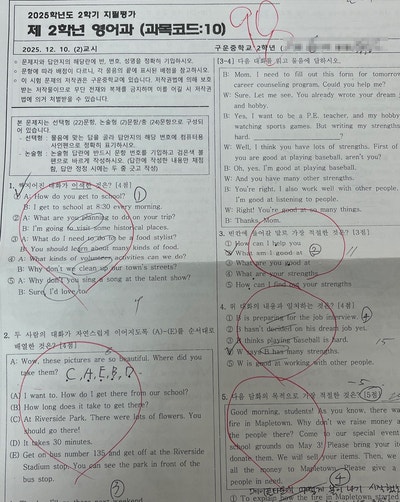 2025학년도 2학기 지필평가
제 2학년 영어과 (과목코드:10)
2025. 12. 10. (2)교시
구운중학교 2학년
98
◦ 문제지와 답안지의 해당란에 반, 번호, 성명을 정확히 기입하시오.
◦ 문항에 따라 배점이 다르니, 각 물음의 끝에 표시된 배점을 참고하시오.
◦ 이 시험 문제의 저작권은 구운중학교에 있습니다. 저작권법에 의해 보호
받는 저작물이므로 무단 전재와 복제를 금지하며 이를 어길 시 저작권
법에 의거 처벌받을 수 있습니다.
본 문제지는 선택형 (22)문항, 논술형 (2)문항(총 (24)문항)으로 구성되
어 있습니다.
- 선택형: 물음에 맞는 답을 골라 답안지의 해당 번호에 컴퓨터용
사인펜으로 정확히 표기하시오.
- 논술형: 논술형 답안은 반드시 문항 번호를 기입하고 검은색 볼
펜으로 바르게 작성하시오. (답안에 작성한 내용만 채점
함, 답안 정정 시에는 두 줄 긋고 작성)
1. 짝지어진 대화가 어색한 것은? [4점]
① A: How do you get to school? ①
B: I get to school at 8:30 every morning.
② A: What are you planning to do on your trip?
B: I'm going to visit some historical places.
③ A: What do I need to do to be a food stylist?
B: You should learn about many kinds of food.
④ A: What kinds of volunteer activities can we do?
B: Why don't we clean up our town's streets?
⑤ A: Why don't you sing a song at the talent show?
B: Sure, I'd love to.
2. 두 사람의 대화가 자연스럽게 이어지도록 (A)-(E)를 순서대로
배열한 것은? [4점]
A: Wow, these pictures are so beautiful. Where did you
take them?
C, A, E, B, D
(A) I want to. How do I get there from our school?
(B) How long does it take to get there?
(C) At Riverside Park. There were lots of flowers. You
should go there!
(D) It takes 30 minutes.
(E) Get on bus number 135 and get off at the Riverside
Stadium stop. You can see the park in front of the
bus stop.
[3~4] 다음 대화를 읽고 물음에 답하시오.
B: Mom, I need to fill out this form for tomorrow
career counseling program. Could you help me?
W: Sure. Let me see. You already wrote your dream
and hobby.
B: Yes, I want to be a P.E. teacher, and my hobby
watching sports games. But writing my strengths
hard.
W: Well, I think you have lots of strengths. First of
you are good at playing baseball, aren't you?
B: Oh, yes, I'm good at playing baseball.
W: And you have many other strengths.
B: You're right. I also work well with other people,
I'm good at listening to people.
W: Right! You're good at so many things.
B: Thanks, Mom.
3. 빈칸에 들어갈 말로 가장 적절한 것은? [3점]
① How can I help you
② What am I good at ②
③ What are you good at
④ What are your strengths
⑤ How can I find our strengths
4. 위 대화의 내용과 일치하는 것은? [4점]
① B is preparing for the job interview. ④
② B hasn't decided on his dream job yet.
③ B thinks playing baseball is hard.
④ W says B has many strengths.
⑤ W is good at working with other people.
5. 다음 담화의 목적으로 가장 적절한 것은? [5점]
Good morning, students! As you know, there wa
fire in Mapletown. Why don't we raise money f
the people there? Come to our special event
school grounds on May 3! Please bring your ite
donate them. We will sell your items. Then, we
all the money to Mapletown. Please give a
people in need!
④
① To explain how the fire in Mapletown started